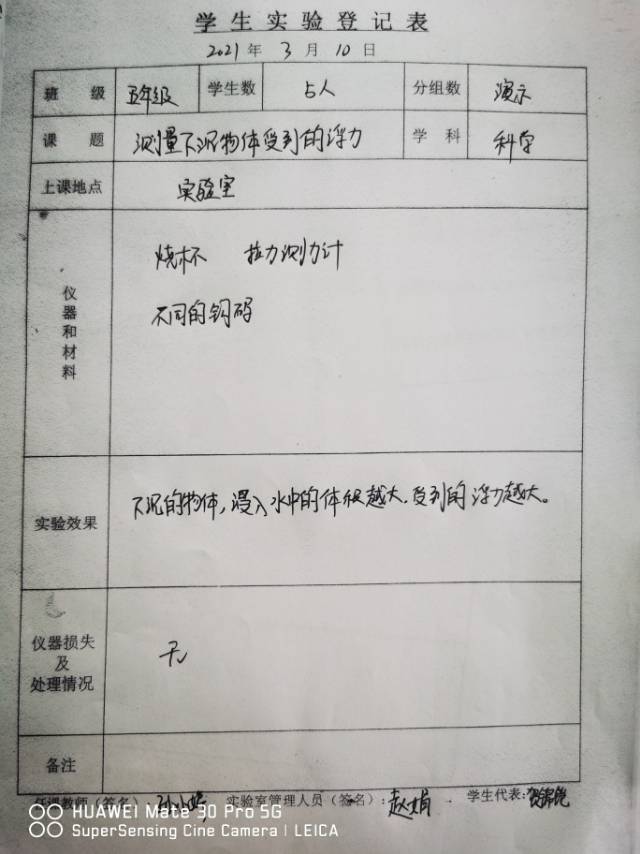 学生实验登记表
2021年3月10日
班级 五年级 学生数 5人 分组数 演示
课题 测量下沉物体受到的浮力 学科 科学
上课地点 实验室
仪器和材料
烧杯 拉力测力计
不同的钩码
实验效果 下沉的物体,浸入水中的体积越大,受到的浮力越大。
仪器损失
及
处理情况
无
备注
任课教师(签名): 实验室管理人员(签名):赵娟 学生代表:
HUAWEI Mate 30 Pro 5G
SuperSensing Cine Camera | LEICA